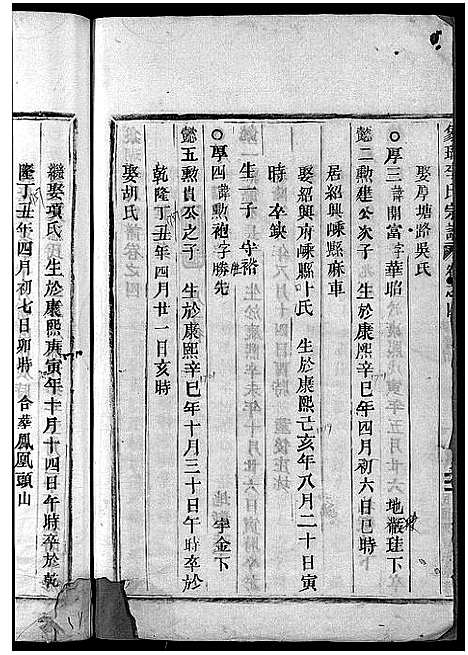 娶厚塘路吳氏
○厚三 諱開富字華昭 地瓶珪下
懿二勲建公次子 生於康熙辛巳年四月初六日巳時
居紹興嵊縣麻車
娶紹興府嵊縣叶氏 生於康熙己亥年八月二十日寅
時 卒缺
生一子 守裕
○厚四 諱勲袍字勝先 地李金下
懿五勲貴公之子 生於康熙辛巳年十月三十日午時卒於
乾隆丁丑年四月廿一日亥時
娶胡氏
繼娶項氏 生於康熙庚寅年十月十四日午時卒於乾
隆丁丑年四月初七日卯時 合葬鳳凰頭山